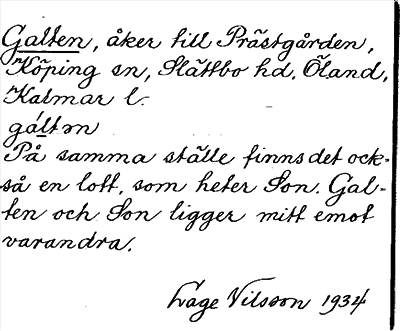 Galten, åker till Prästgården,
Köping sn, Slättbo hd, Öland,
Kalmar l.
gáltən
På samma ställe finns det ock-
så en loft, som heter Son. Gal-
ten och Son ligger mitt emot
varandra.
Låge Nilsson 1934